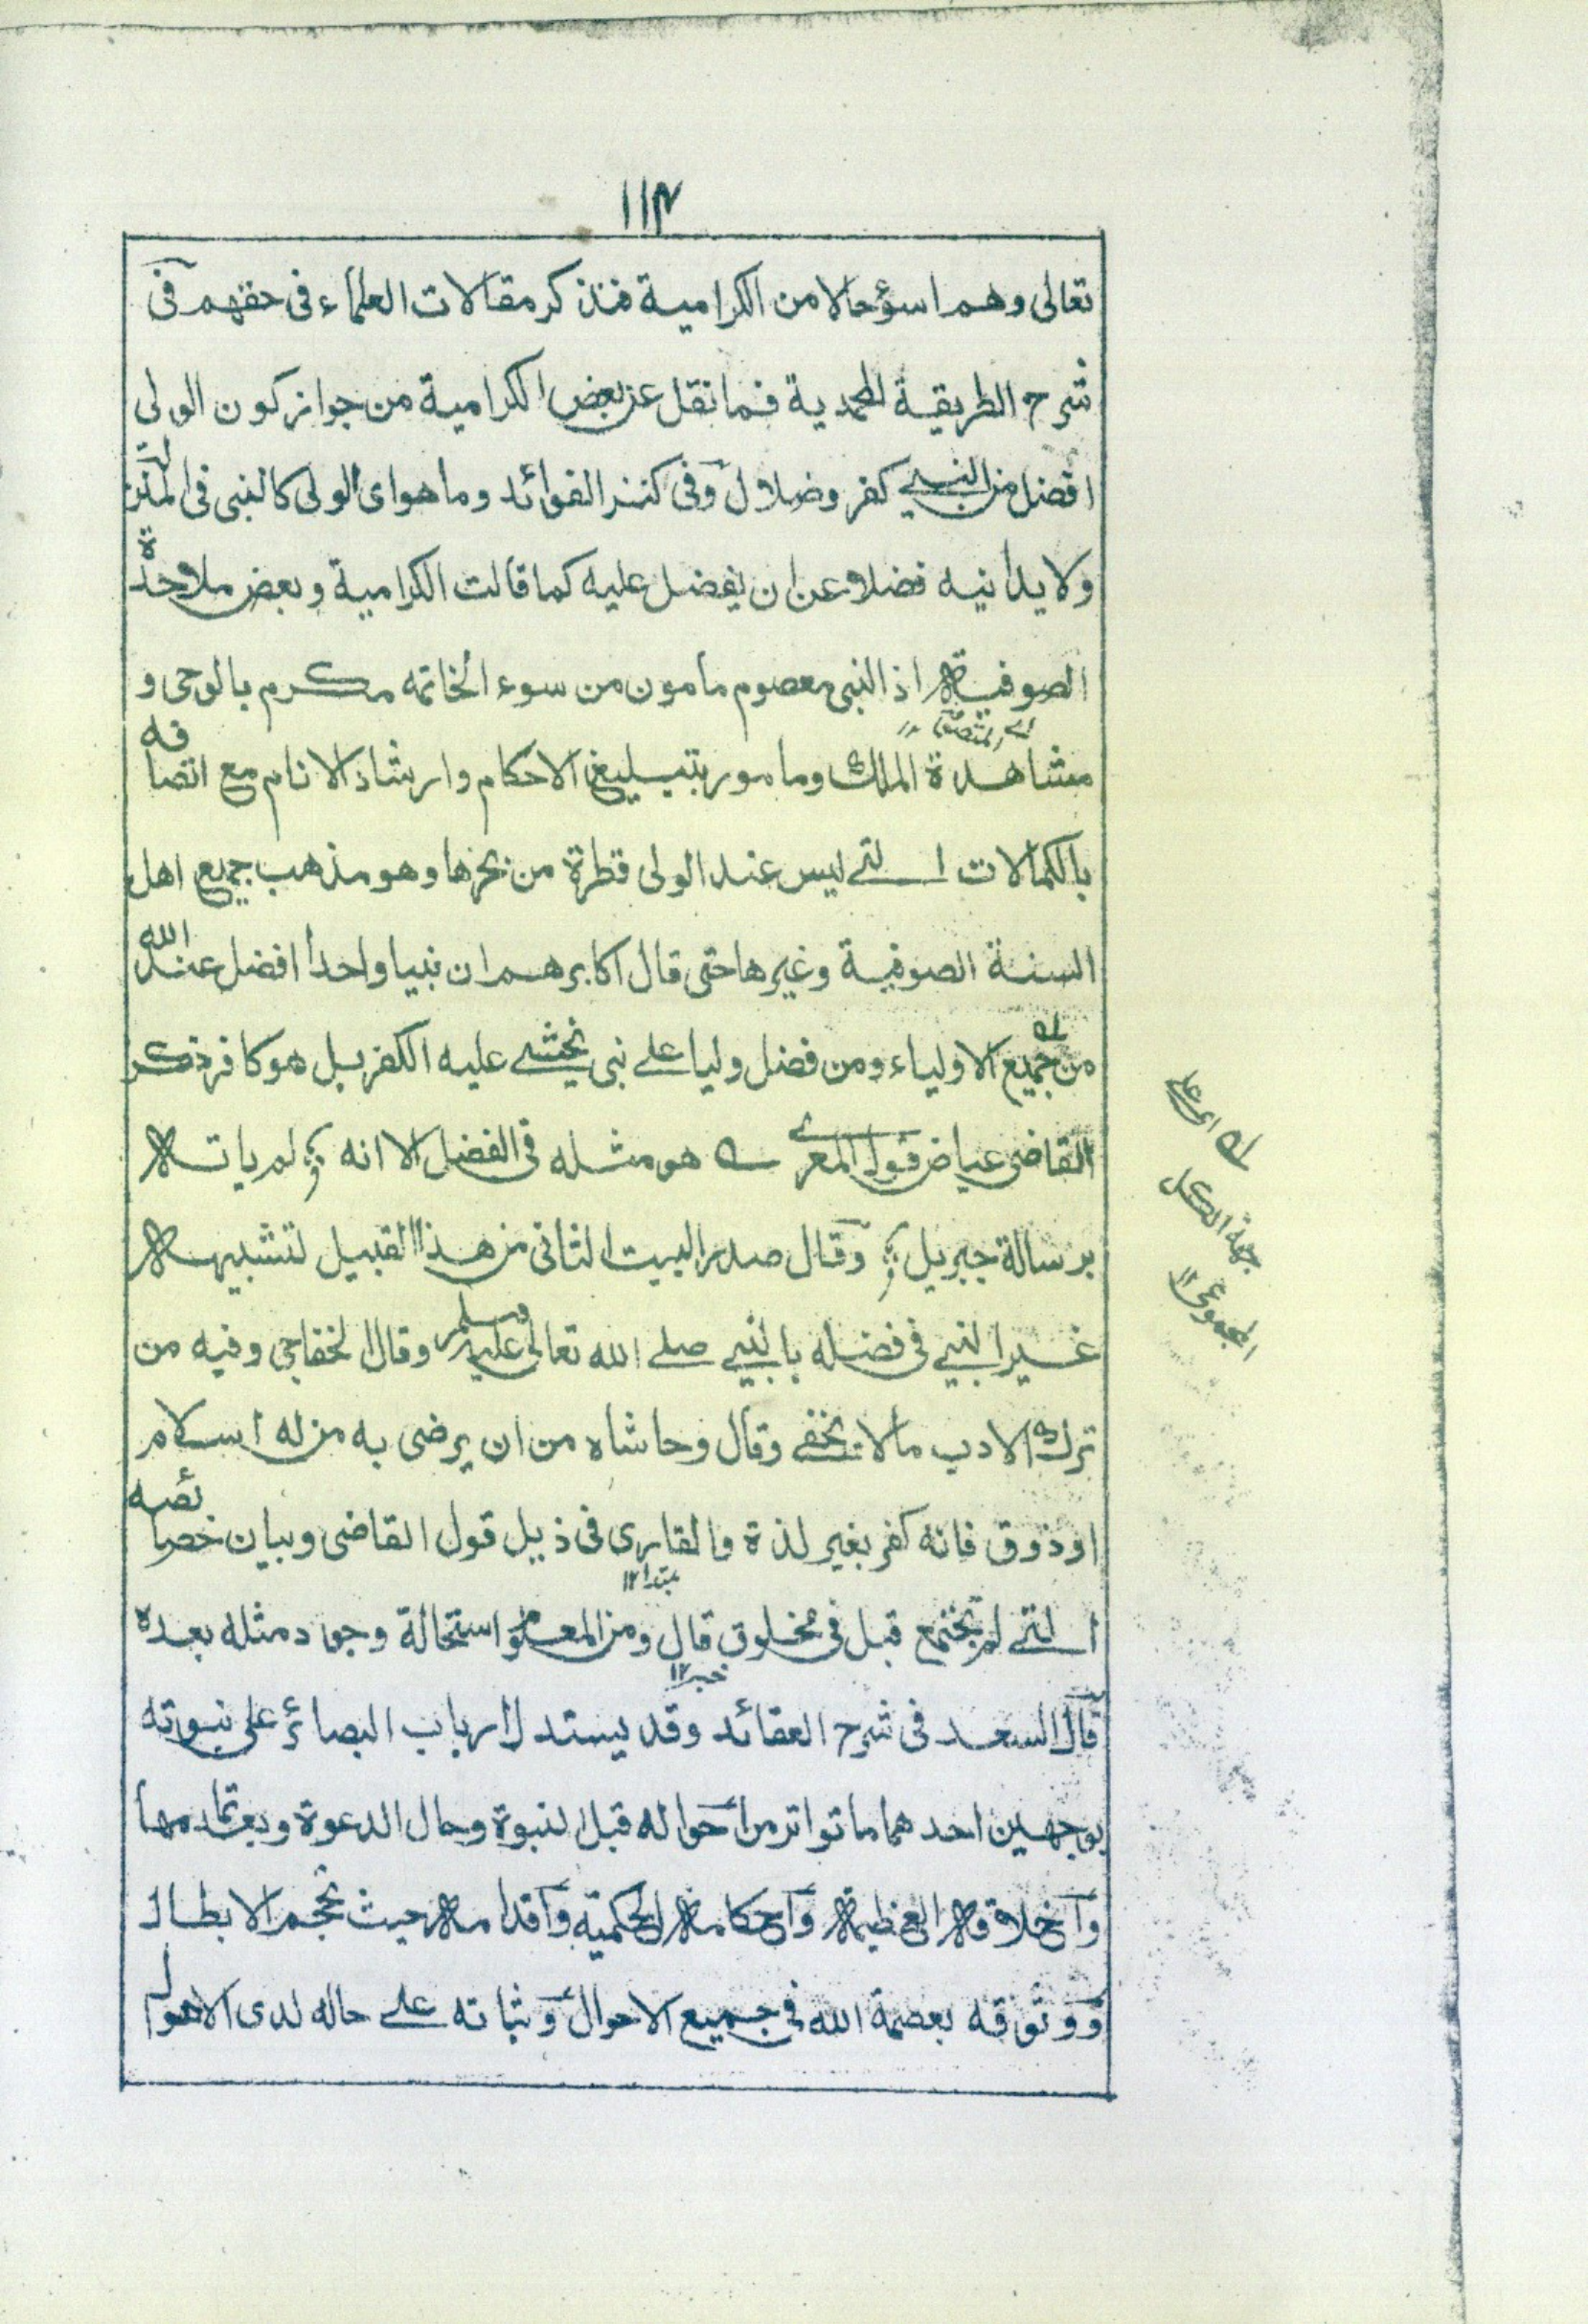 ١١٣
تعالى وهم اسؤ حالا من الكرامية فنذكر مقالات العلماء فى حقهم فى
شرح الطريقة المحمدية فما نقل عن بعض الكرامية من جواز كون الولى
افضل من النبي كفر وضلال وفى كنز الفوائد وما هو اى الولى كالنبى فى المنزلة
ولا يدانيه فضلا عن ان يفضل عليه كما قالت الكرامية وبعض ملاحدة
الصوفية اذ النبى معصوم مامون من سوء الخاتمه مكرم بالوحى و
اے المتصوفة ١٢
مشاهدة الملك ومامور بتبليغ الاحكام وارشاد الانام مع اتصافه
بالكمالات التے ليس عند الولى قطرة من بحرها وهو مذهب جميع اهل
السنة الصوفية وغيرها حتى قال اكابرهم ان نبيا واحدا افضل عند الله
من جميع الاولياء ومن فضل وليا على نبى يخشے عليه الكفر بل هو كافر ذكر
القاضى عياض قول المعرے ؎ هو مثله فى الفضل الا انه ؛ لم ياته
برسالة جبريل ؛ وقال صدر البيت الثانى من هذا القبيل لتشبيهه
غير النبي فى فضله بالنبي صلے الله تعالى عليه وسلم وقال الخفاجى وفيه من
ترك الادب مالا يخفے وقال وحاشاه من ان يرضى به من له اسلام
او ذوق فانه كفر بغير لذة والقارى فى ذيل قول القاضى وبيان خصائصه
مبتدا ١٢
التے لم تجتمع قبل فى مخلوق قال ومن المعلوم استحالة وجود مثله بعده
خبر ١٢
قال السعد فى شرح العقائد وقد يستدل ارباب البصائر على نبوته
بوجهين احدهما ما تواتر من احواله قبل النبوة وحال الدعوة وبعد تمامها
واخلاقه العظيمة واحكامه الحكمية واقدامه حيث تحجم الابطال
ووثوقه بعصمة الله فى جميع الاحوال وثباته على حاله لدى الاهوال
له اى على
جهة الكل
المجموعى ١٢